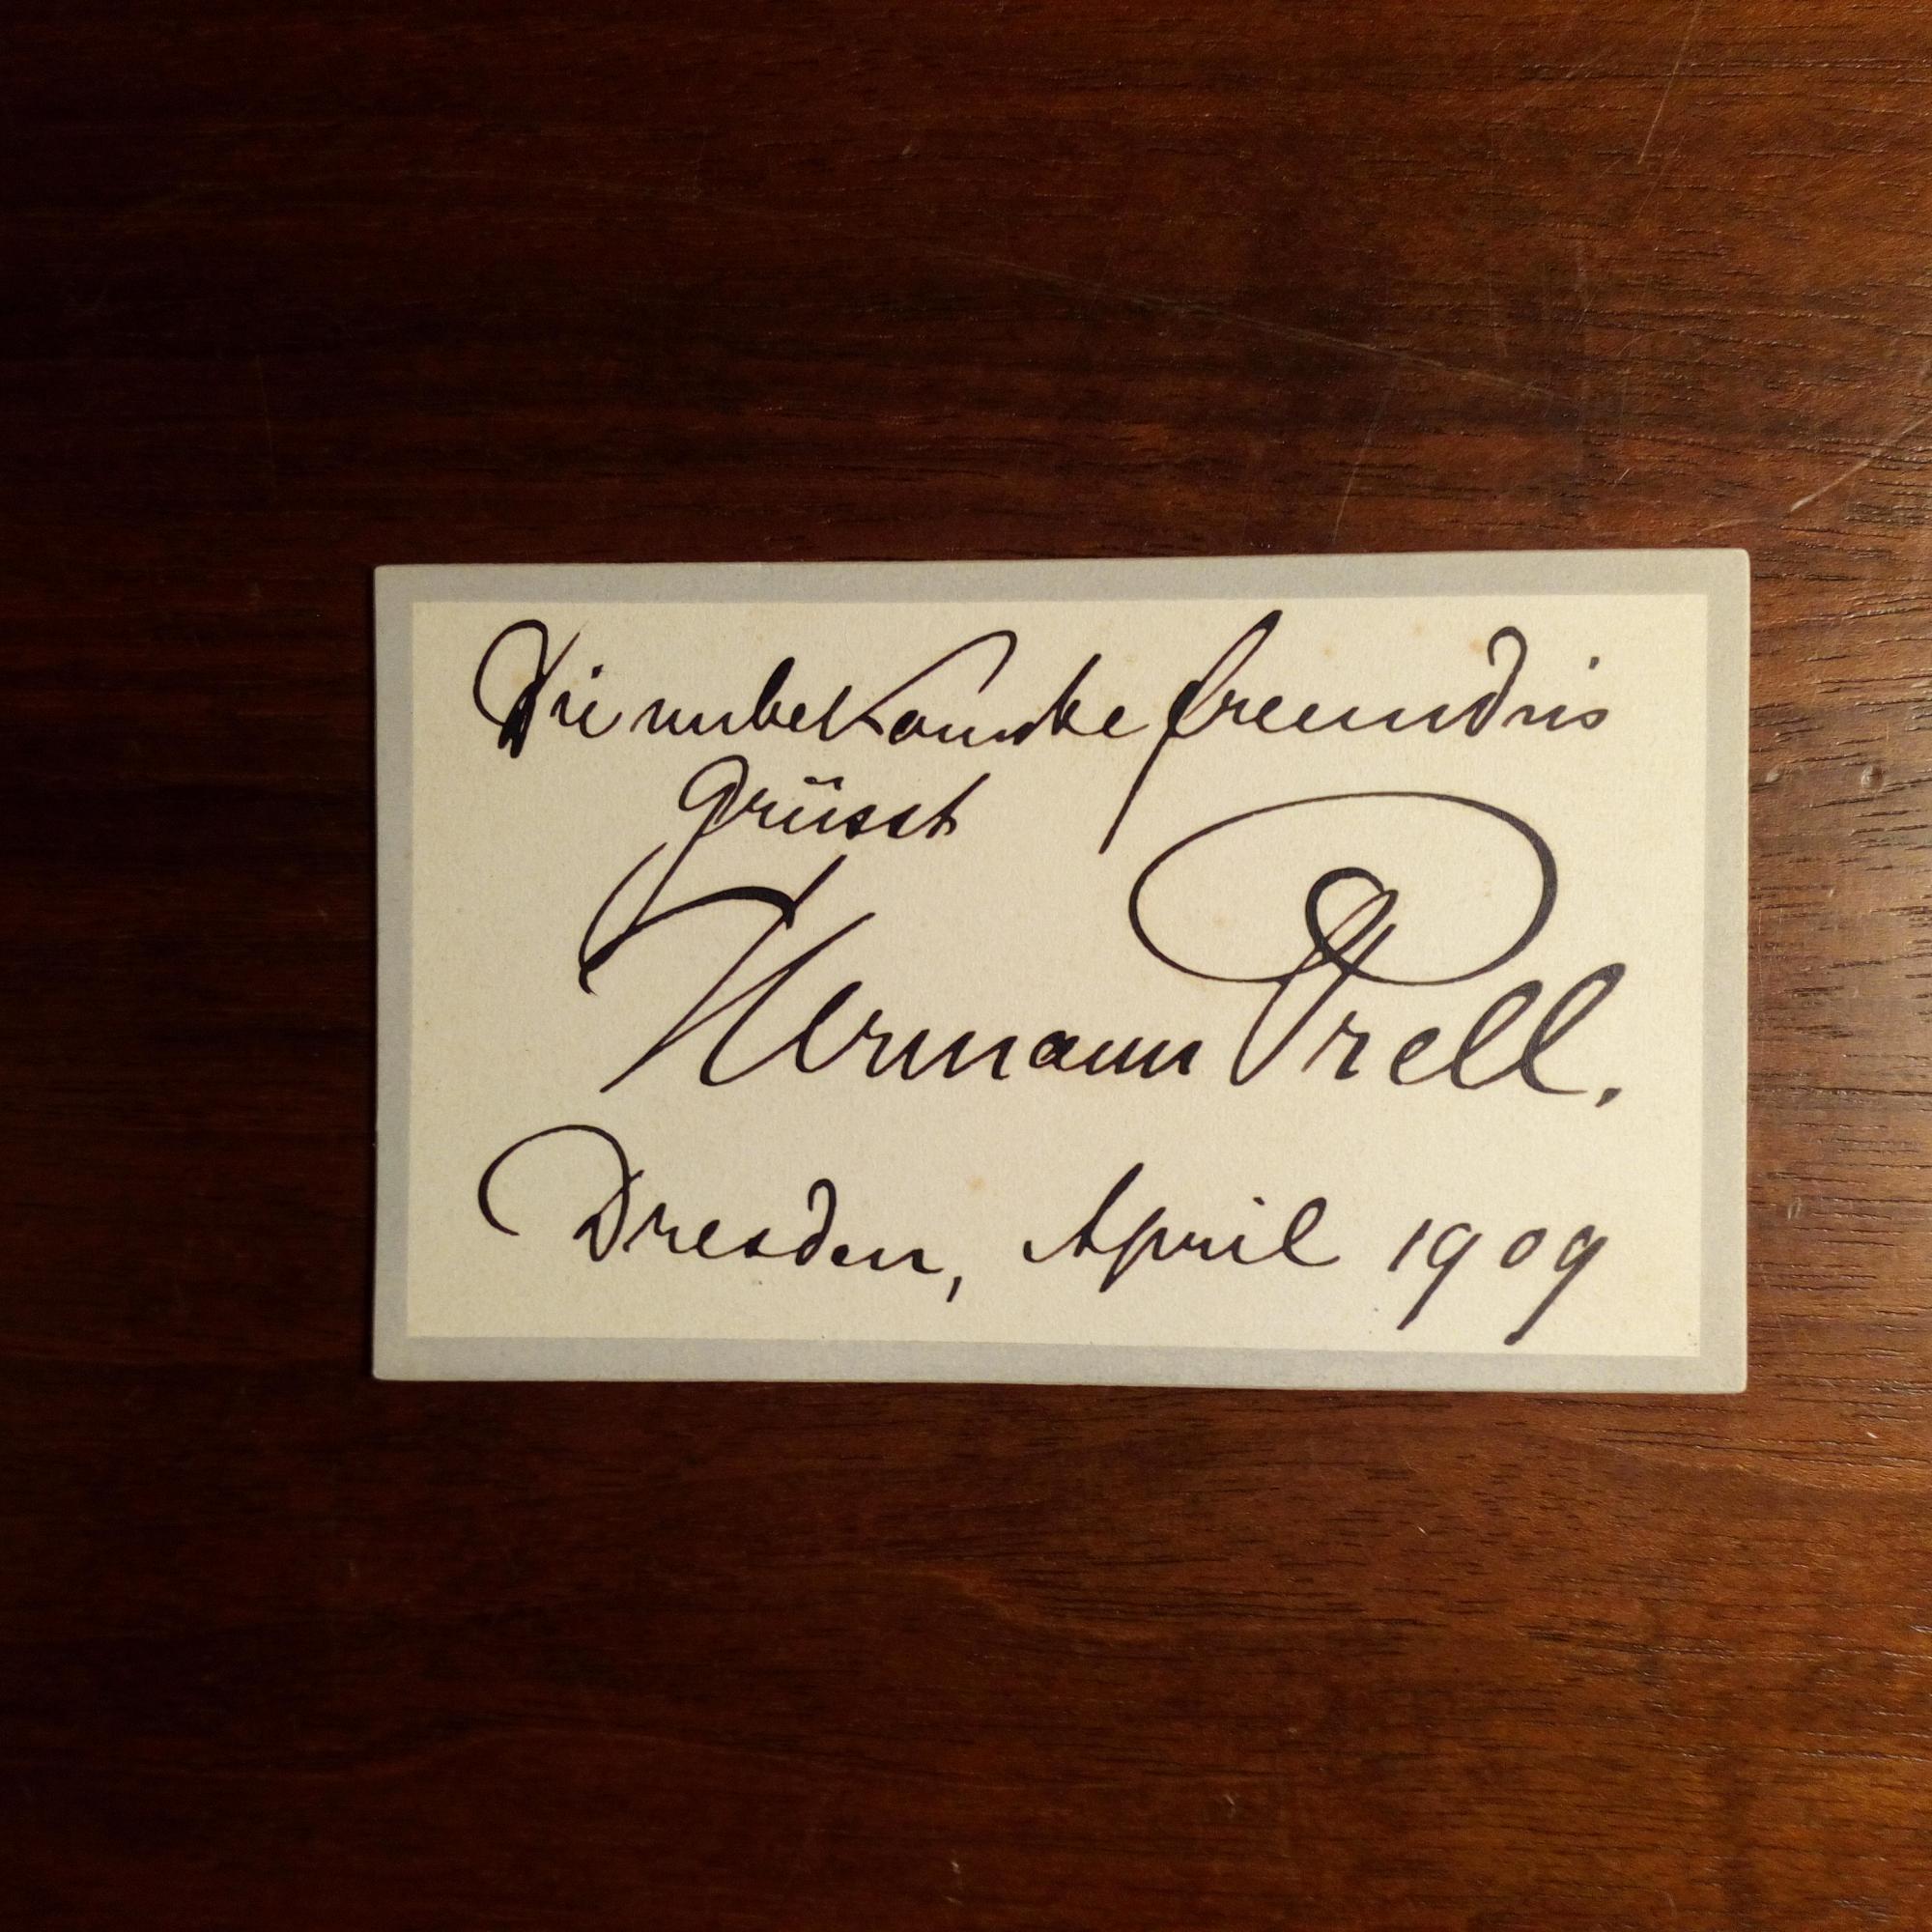 Die unbekannte Freundin
grüsst
Hermann Prell.
Dresden, April 1909